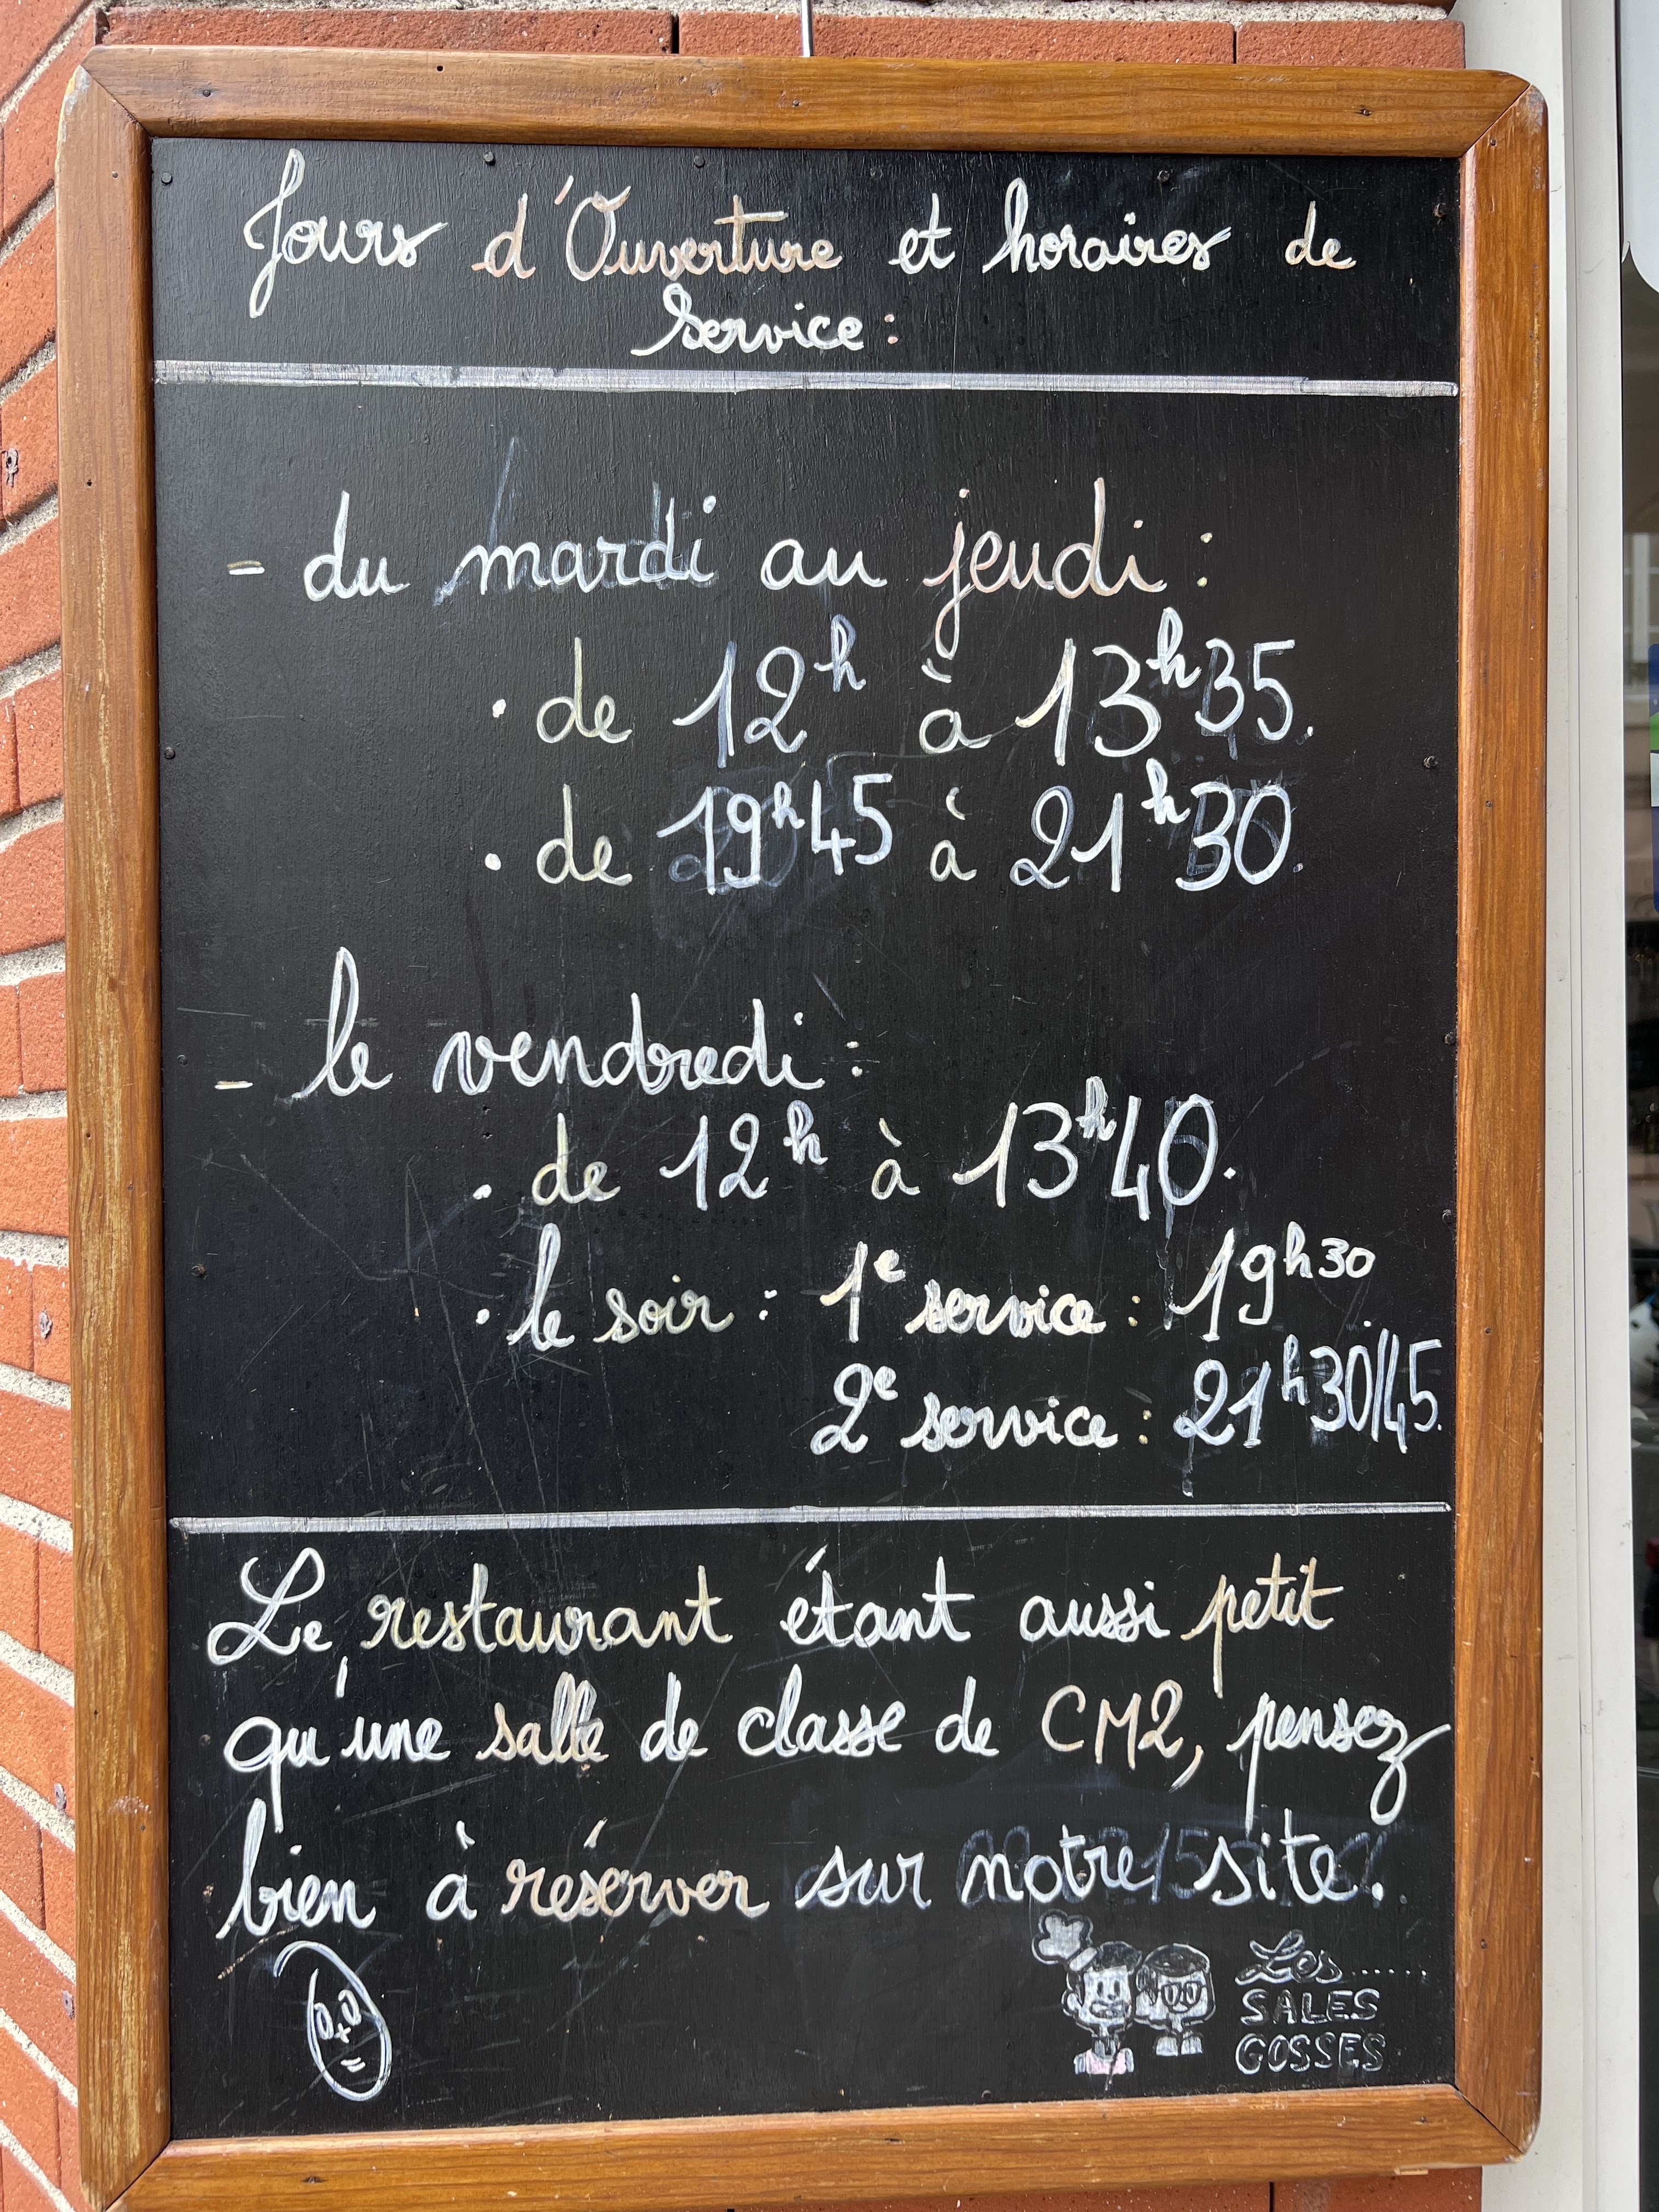 Jours d'Ouverture et horaires de
Service :
- du mardi au jeudi :
• de 12h à 13h35.
• de 19h45 à 21h30.
- le vendredi :
• de 12h à 13h40.
• le soir : 1e service : 19h30.
2e service : 21h30/45.
Le restaurant étant aussi petit
qu'une salle de classe de CM2, pensez
bien à réserver sur notre site.
Les......
SALES
GOSSES